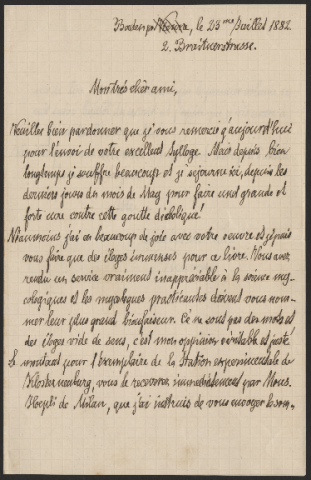 Baden p/ Vienne, le 23me Juillet 1882.
2. Breitnerstrasse.
Mon très chèr ami,
Veuillez bien pardonner que je vous remercie qu'aujourd'hui
pour l'envoi de votre excellent Sylloge. Mais depuis bien
longtemps je souffre beaucoup et je séjourne ici, depuis les
derniers jours du mois de May pour faire une grande et
forte cure contre cette goutte diabolique.
Néanmoins j'ai eu beaucoup de joie avec votre oeuvre et je puis
vous faire que des éloges immenses pour ce livre. Vous avez
rendu un service vraiment inappréciable à la science my-
cologique et les mycologues practicantes doivent vous nom-
mer leur plus grand bienfaiteur. Ce ne sont pas des mots et
des éloges vide de sens, c'est mon opinion véritable et juste.
Le montant pour l'exemplaire de la Station experimentale de
Klosterneuburg, vous le recevrez immédiatement par Mons.
Hoepli de Milan, que j'ai instruis de vous envoyer la som-